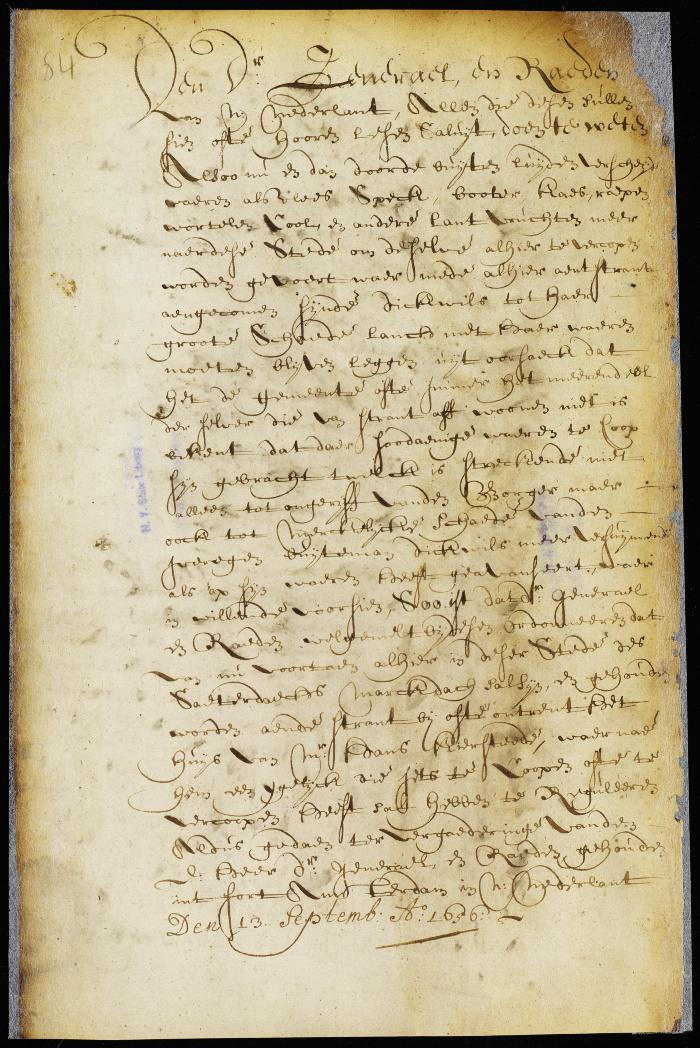 84
Den Dr. Generael, en Raeden
van N Nederlant, Allen die desen sullen
sien ofte hooren lesen Saluyt, doen te weten
Alsoo nu en dan door de buyten luyden verscheyd
waeren als vlees Speck, booter, kaes, raepen
wortelen Cool, en andere lant vruchten meer
naer dese Stede om deselve alhier te vercopen
worden gevoert waer mede alhier aent strant
aengecomen synde dickwils tot haer
groote Schaede lanck met haer waeren
moeten blyven leggen uyt oorsaeck dat
het de gemeente ofte immer het meerendeel
der selver die van strant aff woonen niet is
bekent dat daer soodaenige waeren te Coop
syn gebracht twelck is streckende niet
alleen tot ongeriff vanden Borger maer
oock tot merckelycke Schaede vanden
buyteman dickwils meer versuymende
als op syn waeren heeft geavanseert, waer
in willende voorsien, Soo ist dat dr. generael
en Raeden welgemelt by desen ordonneeren dat
van nu voortaen alhier in deser Stede des
Saeterdaechs marckdach sal syn, en gehouden
worden aende strant by ofte ontrent het
huys van Mr. Hans Kierstede, waer naer
hem een ygelyck die jets te Coopen ofte te
vercoopen heeft sal hebben te Reguleeren
Aldus gedaen ter vergaederinge vanden
Heer Dr. generael, en Raeden gehouden
int fort Amsterdam in N: Nederlant
Den 13. Septemb: Ao. 1656:
N.Y. State Library